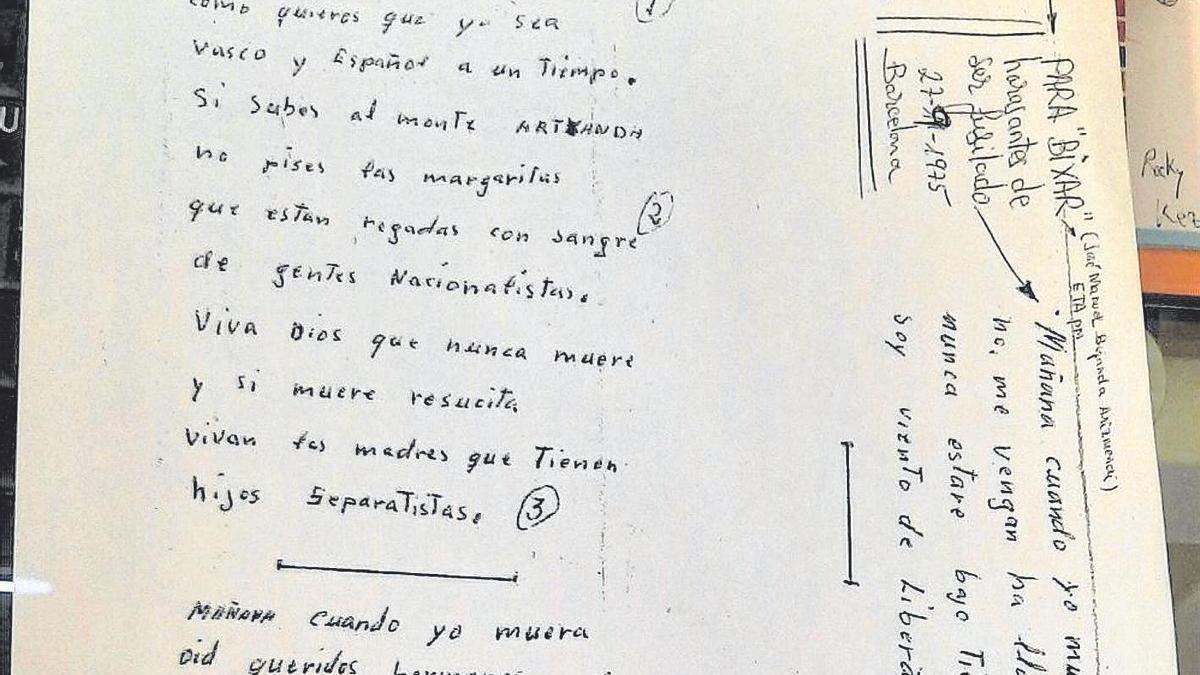 como quieres que yo sea
(1)
Vasco y Español a un Tiempo.
Si subes al monte ARTXANDA
no pises las margaritas
que estan regadas con sangre
(2)
de gentes Nacionalistas.
Viva Dios que nunca muere
y si muere resucita
vivan las madres que Tienen
hijos Separatistas.
3
MAÑANA cuando yo muera
Oid queridos
PARA "BIXAR" (José Manuel Arizmendi)
ETA pm
haras antes de
ser fusilado.
27-9-1975
Barcelona
Mañana cuando yo mu
no, me vengan ha llo
nunca estare bajo Ti
Soy viento de Libera
Rocky
Kez
U